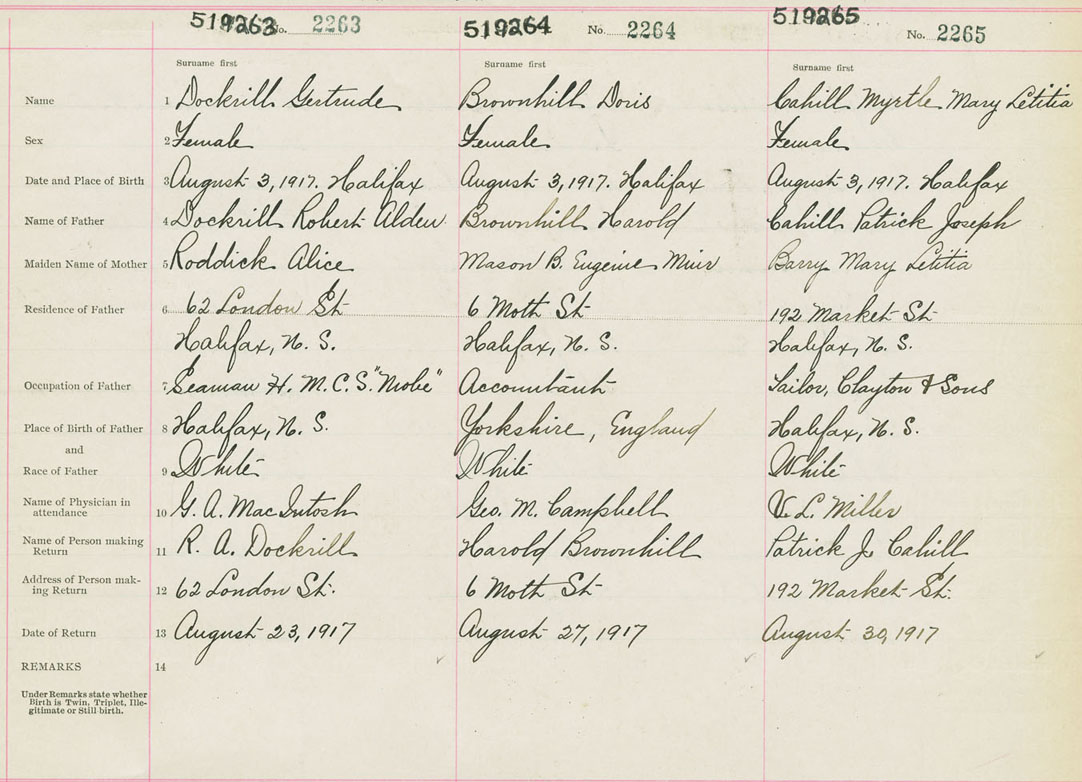 519263 No. 2263 519264 No. 2264 519265 No. 2265
Surname first Surname first Surname first
Name 1 Dockrill Gertrude Brownhill Doris Cahill Myrtle Mary Letitia
Sex 2 Female Female Female
Date and Place of Birth 3 August 3, 1917. Halifax August 3, 1917. Halifax August 3, 1917. Halifax
Name of Father 4 Dockrill Robert Alden Brownhill Harold Cahill Patrick Joseph
Maiden Name of Mother 5 Roddick Alice Mason B. Eugenie Muir Barry Mary Letitia
Residence of Father 6 62 London St 6 Moth St 192 Market St
Halifax, N. S. Halifax, N. S. Halifax, N. S.
Occupation of Father 7 Seaman H. M. C. S. "Niobe" Accountant Tailor, Clayton & Sons
Place of Birth of Father 8 Halifax, N. S. Yorkshire, England Halifax, N. S.
and
Race of Father 9 White White White
Name of Physician in
attendance 10 G. A. MacIntosh Geo. M. Campbell V. L. Miller
Name of Person making
Return 11 R. A. Dockrill Harold Brownhill Patrick J Cahill
Address of Person mak-
ing Return 12 62 London St. 6 Moth St 192 Market St.
Date of Return 13 August 23, 1917 August 27, 1917 August 30, 1917
REMARKS 14
Under Remarks state whether
Birth is Twin, Triplet, Ille-
gitimate or Still birth.